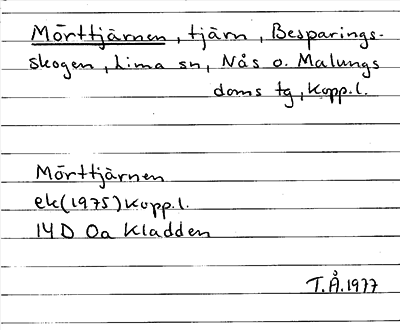 Mörttjärnen, tjärn, Besparings-
skogen, Lima sn, Nås o. Malungs
doms tg, Kopp.l.
Mörttjärnen
ek(1975)Kopp.l.
14D 0a Kladden
T.Å.1977